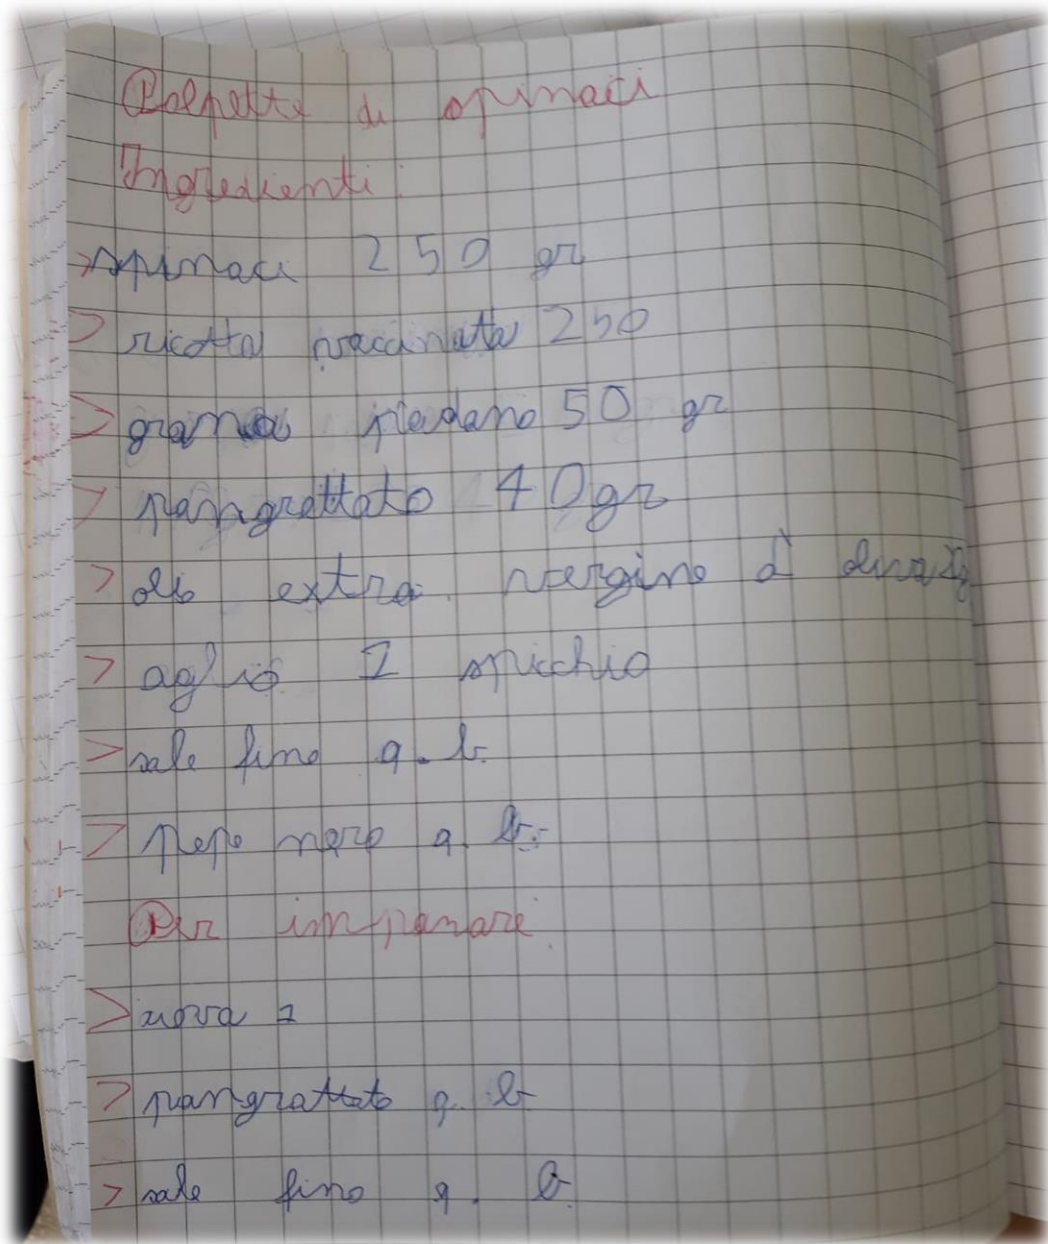 Polpette di spinaci
Ingredienti:
> spinaci 250 gr
> ricotta vaccinata 250
> grana padano 50 gr
> pangrattato 40 gr
> olio extra vergine d'
> aglio 1 spicchio
> sale fino q.b.
> pepe nero q.b.
Per impanare
> uova 2
> pangrattato q.b
> sale fino q.b